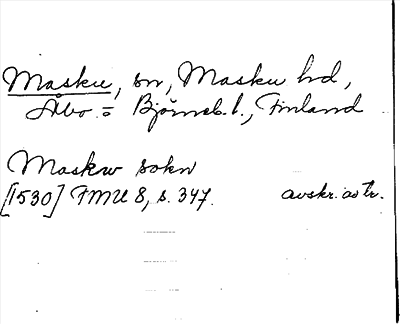 Masku, sn, Masku hd,
Åbo = Björneb. l., Finland
Maskw sokn
[1530] FMU 8, s. 347. avskr. as tr.